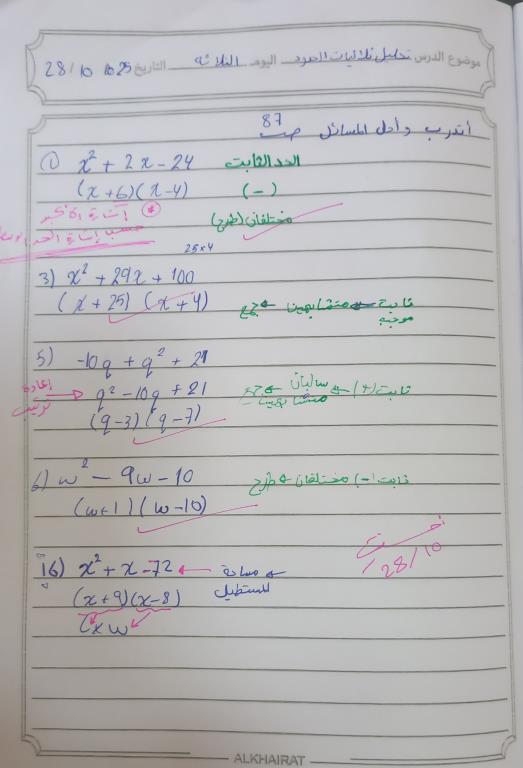 موضوع الدرس تحليل ثلاثيات الحدود اليوم الثلاثاء التاريخ 28/10 2025
أتدرب وأحل المسائل ص 87
1) x² + 2x - 24 الحد الثابت
(x+6)(x-4) (-)
مختلفان (طرح)
* إشارة الأكبر
حسب إشارة الحد الأوسط
25x4
3) x² + 29x + 100
(x+25) (x+4) ثابت متشابهين جمع
موجبة
5) -10q + q² + 21
إعادة ترتيب → q² - 10q + 21 ثابت (+) سالبان جمع
متشابهين
(q-3)(q-7)
6) w² - 9w - 10 ثابت (-) مختلفان طرح
(w+1)(w-10)
28/10
16) x² + x - 72 ← مساحة
المستطيل
(x+9)(x-8)
ALKHAIRAT